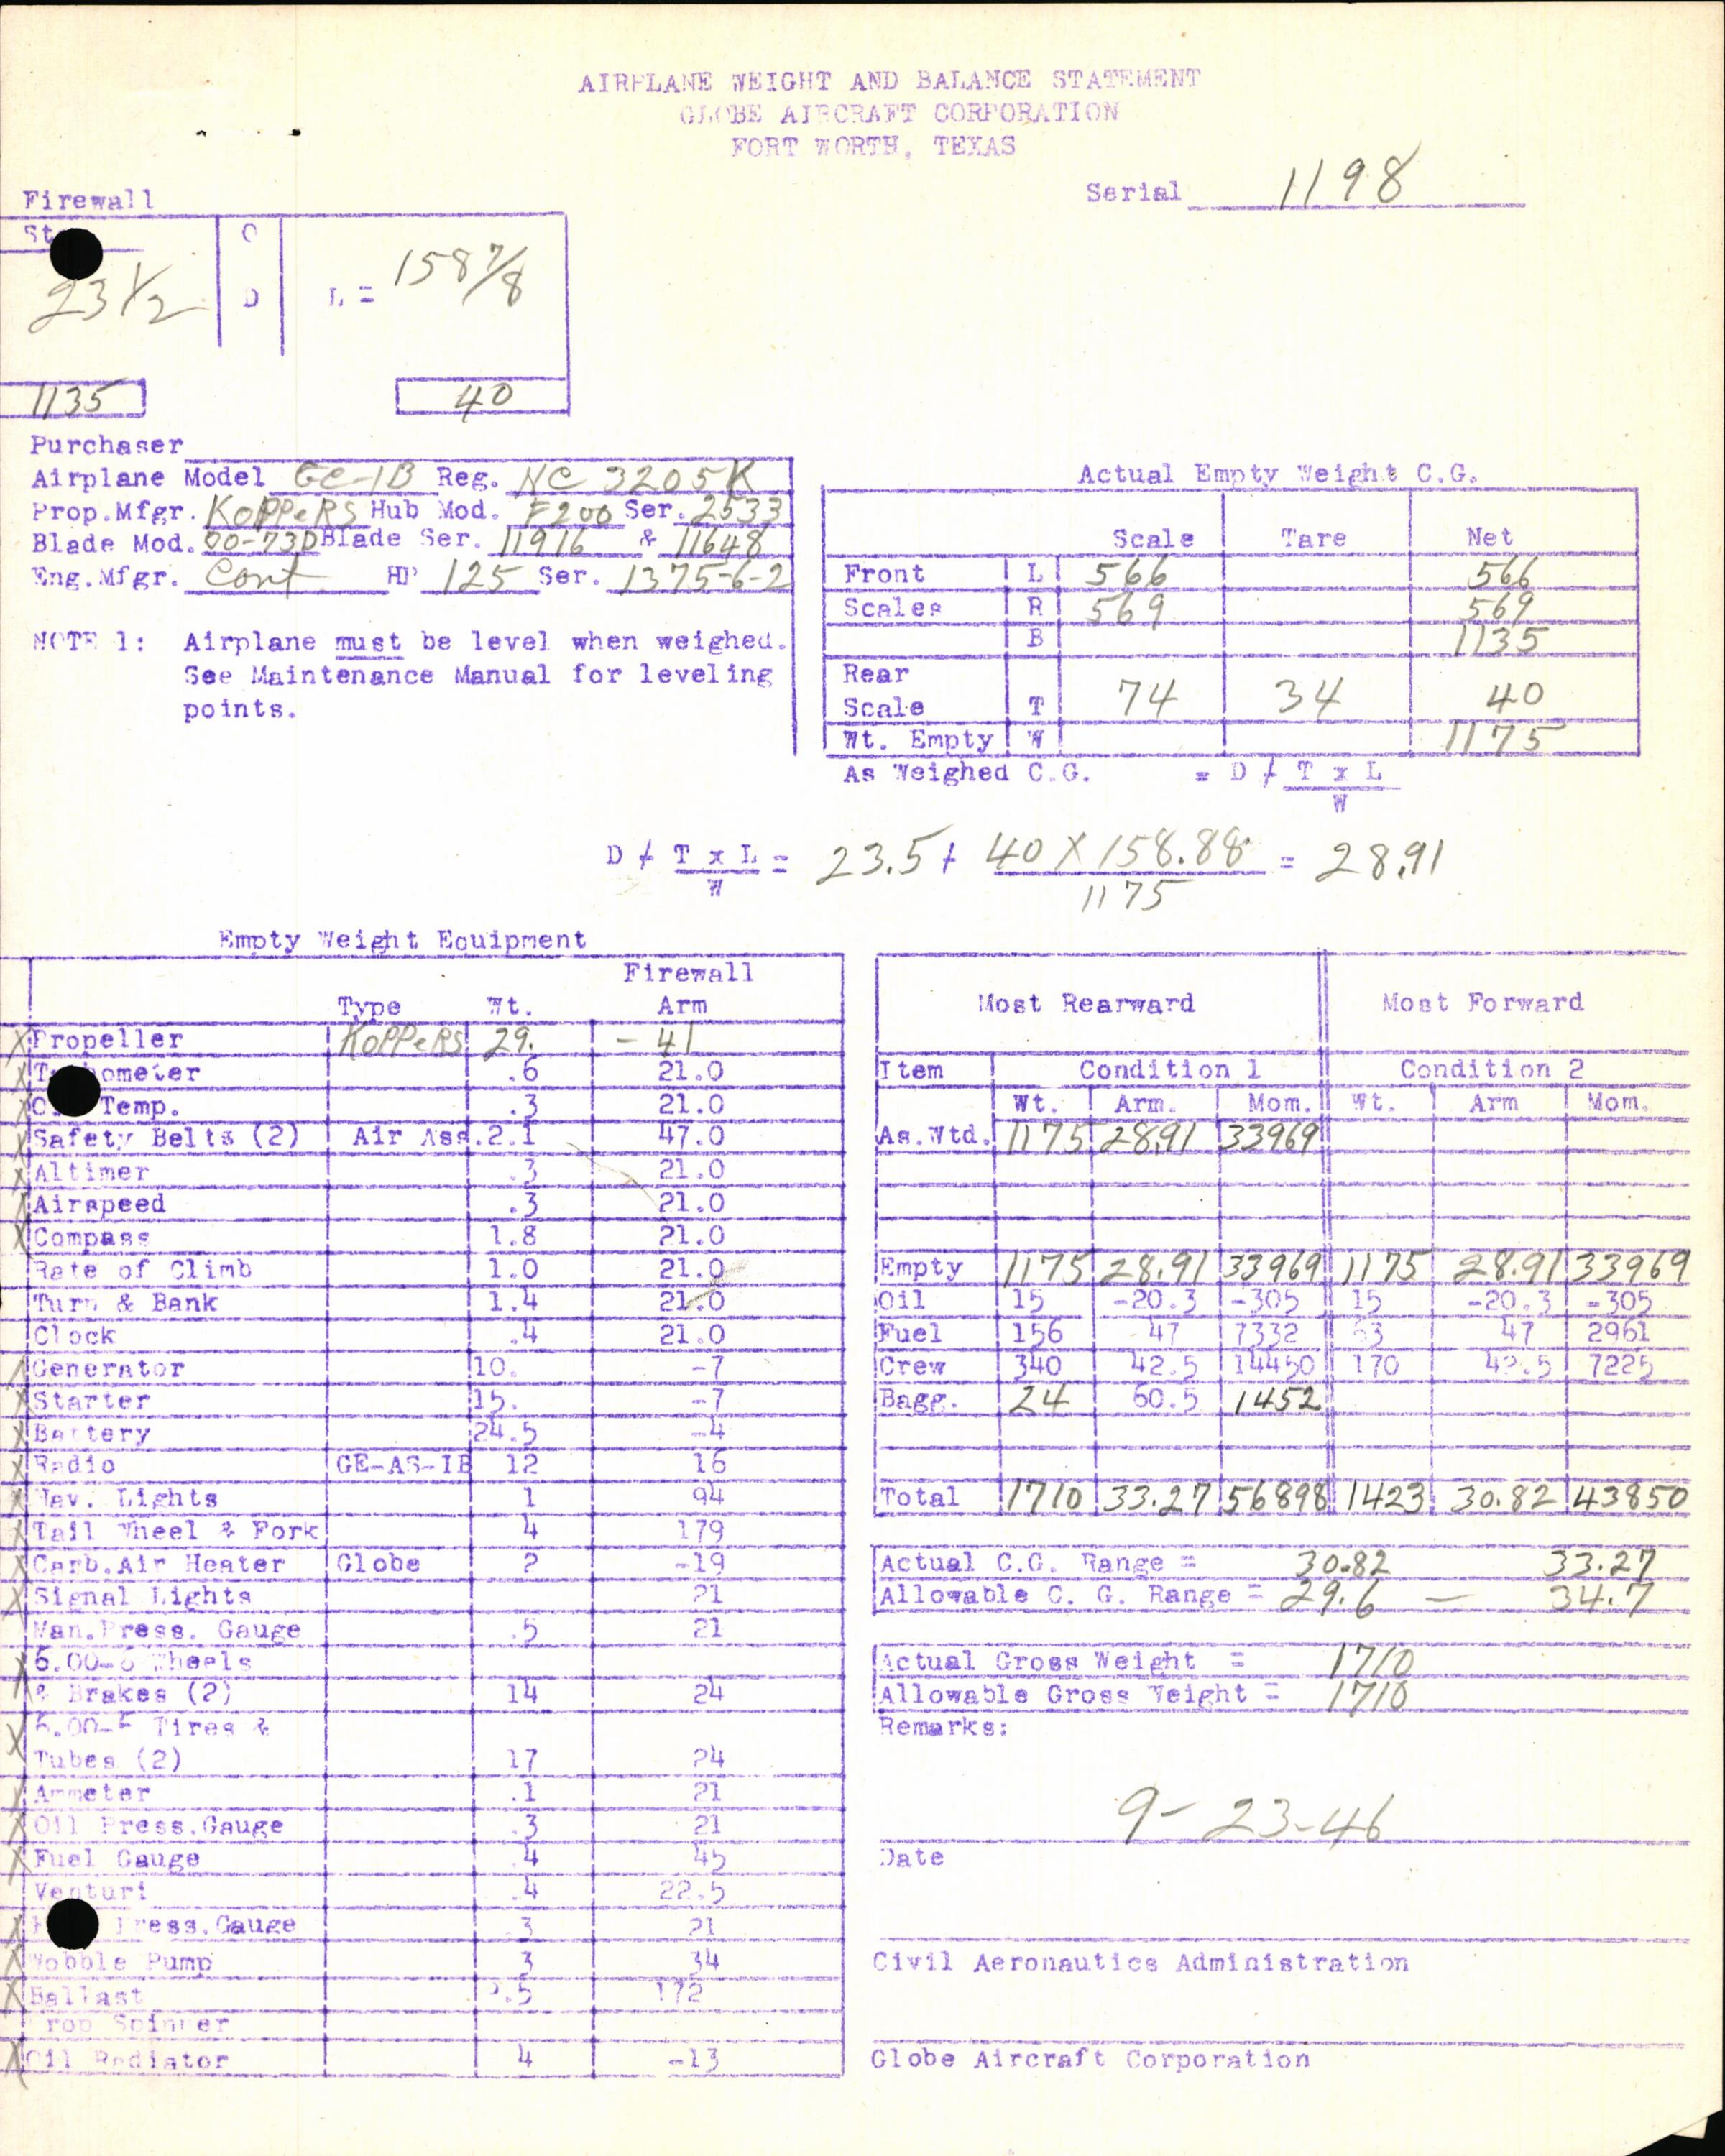 AIRPLANE WEIGHT AND BALANCE STATEMENT
GLOBE AIRCRAFT CORPORATION
FORT WORTH, TEXAS
Serial 1198
Firewall
C
23 1/2 D L = 158 7/8
1135 40
Purchaser
Airplane Model GC-1B Reg. NC 3205K
Prop.Mfgr. KOPPERS Hub Mod. F200 Ser. 2533
Blade Mod. 00-73D Blade Ser. 11916 & 11648
Eng.Mfgr. Cont HP 125 Ser. 1375-6-2
NOTE 1: Airplane must be level when weighed.
See Maintenance Manual for leveling
points.
Actual Empty Weight C.G.
Scale Tare Net
Front L 566 566
Scales R 569 569
B 1135
Rear
Scale T 74 34 40
Wt. Empty W 1175
As Weighed C.G. = D + T x L
W
D + T x L = 23.5 + 40 X 158.88 = 28.91
W 1175
Empty Weight Equipment
Firewall
Type Wt. Arm
X Propeller KOPPERS 29. - 41
X .6 21.0
X Temp. .3 21.0
X Safety Belts (2) Air Ass. 2.1 47.0
X Altimer .3 21.0
X Airspeed .3 21.0
X Compass 1.8 21.0
Rate of Climb 1.0 21.0
Turn & Bank 1.4 21.0
Clock .4 21.0
X Generator 10. -7
X Starter 15. -7
X Battery 24.5 -4
X Radio GE-AS-1B 12 16
X Nav. Lights 1 94
X Tail Wheel & Fork 4 179
X Carb.Air Heater Globe 2 -19
X Signal Lights 21
Man.Press. Gauge .5 21
X 6.00-6 Wheels
X & Brakes (2) 14 24
X Tires &
Tubes (2) 17 24
X Ammeter .1 21
X Oil Press.Gauge .3 21
X Fuel Gauge .4 45
Venturi .4 22.5
X Press.Gauge .3 21
X Wobble Pump 3 34
X Ballast 172
Prop Spinner
X Oil Radiator 4 -13
Most Rearward Most Forward
Item Condition 1 Condition 2
Wt. Arm. Mom. Wt. Arm Mom.
As.Wtd. 1175 28.91 33969
Empty 1175 28.91 33969 1175 28.91 33969
Oil 15 -20.3 -305 15 -20.3 -305
Fuel 156 47 7332 63 47 2961
Crew 340 42.5 14450 170 42.5 7225
Bagg. 24 60.5 1452
Total 1710 33.27 56898 1423 30.82 43850
Actual C.G. Range = 30.82 33.27
Allowable C. G. Range = 29.6 — 34.7
Actual Gross Weight = 1710
Allowable Gross Weight = 1710
Remarks:
9-23-46
Date
Civil Aeronautics Administration
Globe Aircraft Corporation